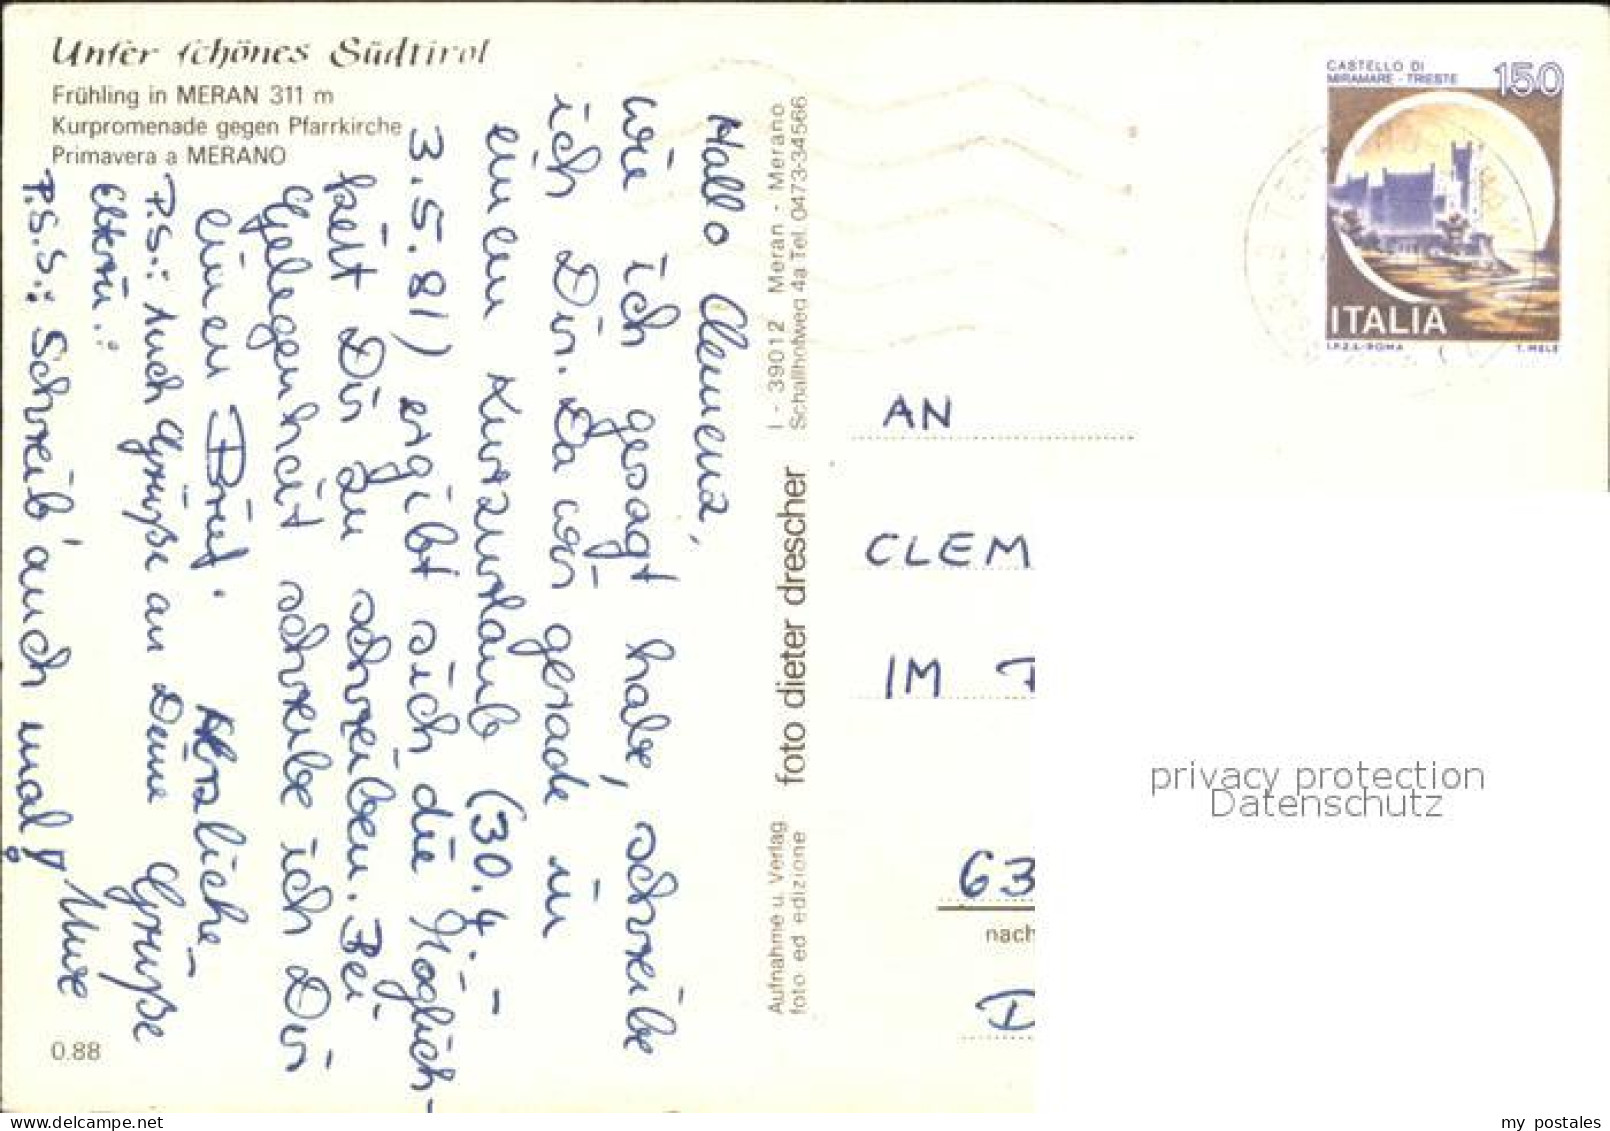 Unser schönes Südtirol
Frühling in MERAN 311 m
Kurpromenade gegen Pfarrkirche
Primavera a MERANO
Hallo Clemens,
wie ich gesagt habe, schreibe
ich Dir. Da wir gerade in
einem Kurzurlaub (30.4.-
3.5.81) ergibt sich die Möglich-
keit Dir zu schreiben. Bei
Gelegenheit schreibe ich Dir
einen Brief.
Herzliche
Grüße
P.S.: Auch Grüße an Deine
Eltern!
P.S.S.: Schreib' auch mal!
0.88
I - 39012 Meran - Merano
Schallhofweg 4a Tel. 0473-34566
foto dieter drescher
Aufnahme u. Verlag
foto ed edizione
CASTELLO DI
MIRAMARE - TRIESTE
150
ITALIA
I.P.Z.S.-ROMA
T. MELE
AN
CLEM
IM
63
nach
D
privacy protection
Datenschutz
www.delcampe.net
my_postales